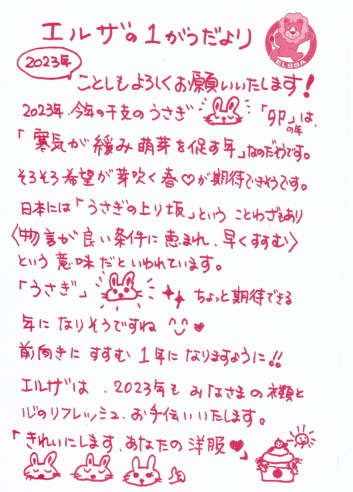 エルザの1がつだより
ELSSA
2023年
ことしもよろしくお願いいたします!
2023年.今年の干支のうさぎ 「卯」は、
の年
「寒気が緩み萌芽を促す年」なのだそうです。
そろそろ希望が芽吹く春♡が期待できそうです。
日本には「うさぎの上り坂」という ことわざもあり
〈物言が良い条件に恵まれ、早くすすむ〉
という意味だといわれています。
「うさぎ」 ちょっと期待できる
年に なりそうですね ♥
前向きに すすむ 1年に なりますように!!
エルザは、2023年も みなさまの衣類と
心のリフレッシュ、お手伝いいたします。
「きれいにします、あなたの洋服♥」